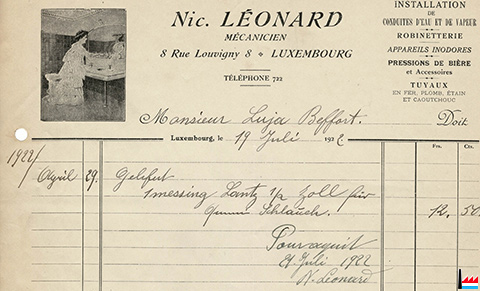 Nic. LÉONARD
MÉCANICIEN
8 Rue Louvigny 8 LUXEMBOURG
TÉLÉPHONE 722
INSTALLATION
DE
CONDUITES D'EAU ET DE VAPEUR
ROBINETTERIE
APPAREILS INODORES
PRESSIONS DE BIÈRE
et Accessoires
TUYAUX
EN FER, PLOMB, ÉTAIN
ET CAOUTCHOUC
Monsieur Luja Beffort. Doit
Luxembourg, le 19 Juli 1922
Frs. Cts.
1922
April 29. Geliefert
1 messing Lantz 1/2 Zoll für
Gummi Schlauch. 12. 50
Pour acquit
21 Juli 1922
N. Leonard